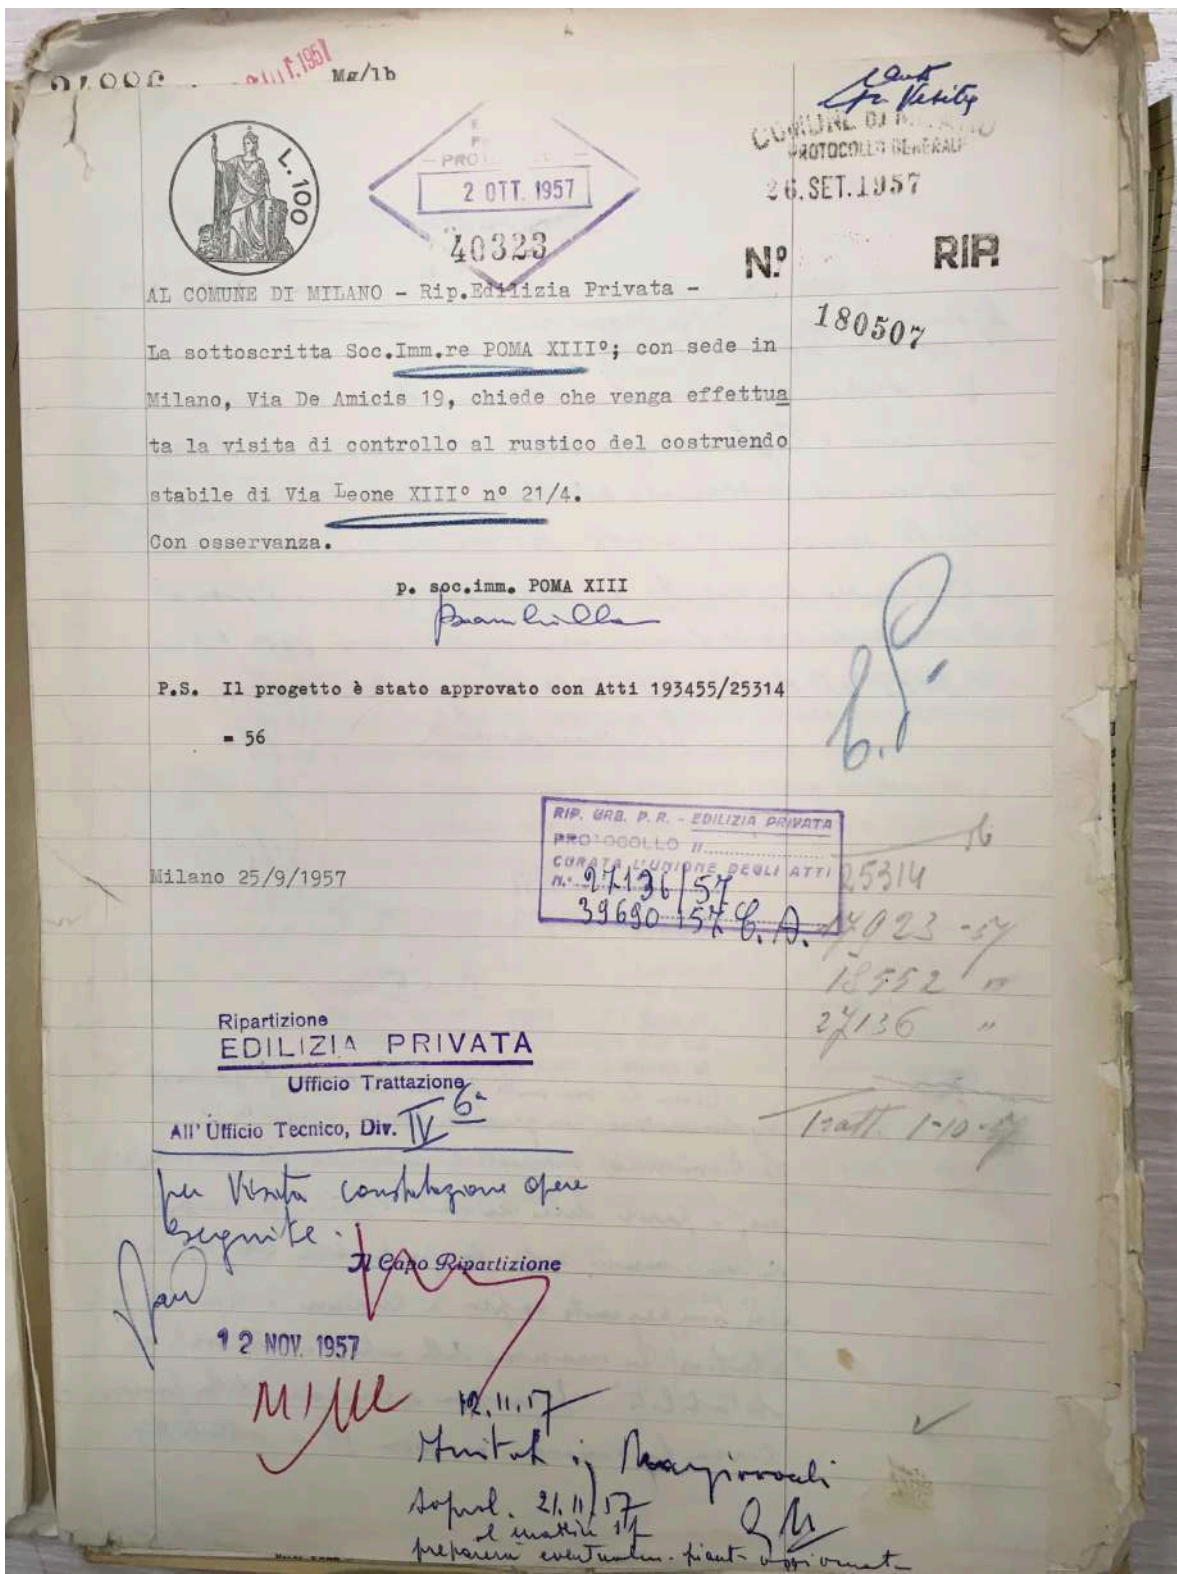 Mg/lb
L.100
2 OTT. 1957
40323
COMUNE DI MILANO
PROTOCOLLO GENERALE
26.SET.1957
N.º RIP.
180507
AL COMUNE DI MILANO - Rip.Edilizia Privata -
La sottoscritta Soc.Imm.re POMA XIIIº; con sede in
Milano, Via De Amicis 19, chiede che venga effettua
ta la visita di controllo al rustico del costruendo
stabile di Via Leone XIIIº nº 21/4.
Con osservanza.
p. soc.imm. POMA XIII
P.S. Il progetto è stato approvato con Atti 193455/25314
= 56
RIP. URB. P. R. - EDILIZIA PRIVATA
PROTOCOLLO N.
CURATA L'UNIONE DEGLI ATTI
N. 27136/57
39690 157 C.A.
Milano 25/9/1957
56
25314
17923 -57
18552 "
27136 "
Tratt. 1-10-57
Ripartizione
EDILIZIA PRIVATA
Ufficio Trattazione
All'Ufficio Tecnico, Div. IV 6ª
per Visita constatazione opere
eseguite.
Il Capo Ripartizione
12 NOV. 1957
12.11.57
sopral. 21.11.57
preparerà